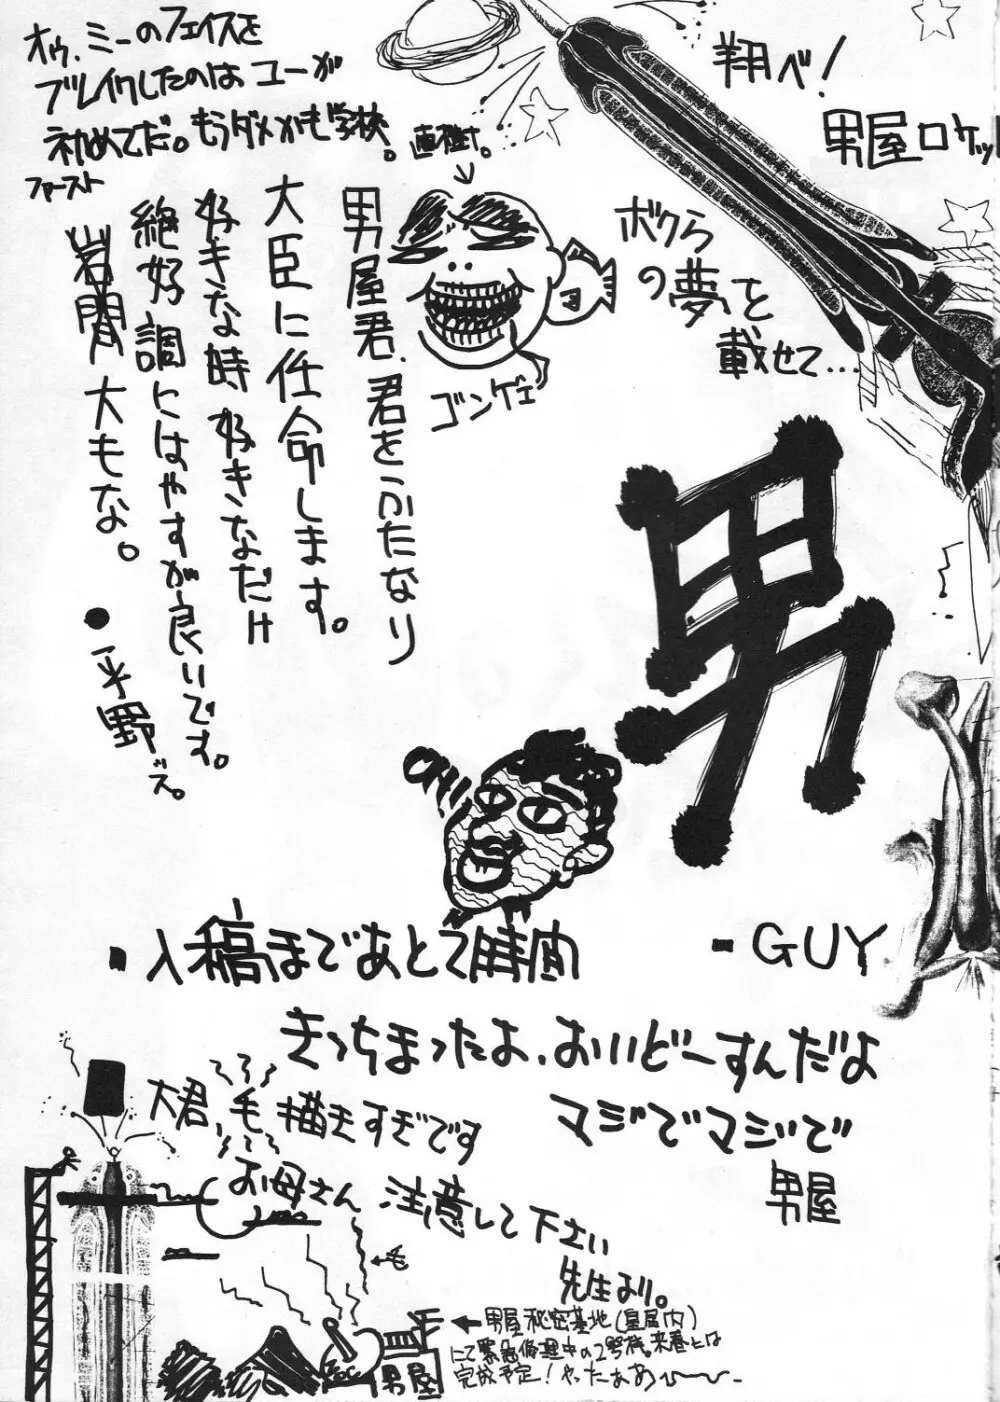 オゥ、ミーのフェイスを
ブレイクしたのはユーが
初めてだ。もうダメかも学校。直樹。
ファースト
翔べ!
男屋ロケット
ボクら
の夢を
載せて…
ゴンゲェ
男屋君、君をふたなり
大臣に任命します。
好きな時好きなだけ
絶好調にはやすが良いです。
岩間大もな。
●平野ズ。
男
CHU
・GUY
・入稿まであと2時間
きっちまったよ、おいどーすんだよ
マジでマジで
男屋
大君、毛描きすぎです
お母さん注意して下さい
先生より。
←毛
←男屋秘密基地(皇居内)
にて緊急修理中の2号機。来春には
完成予定!やったぁあ〜
男屋